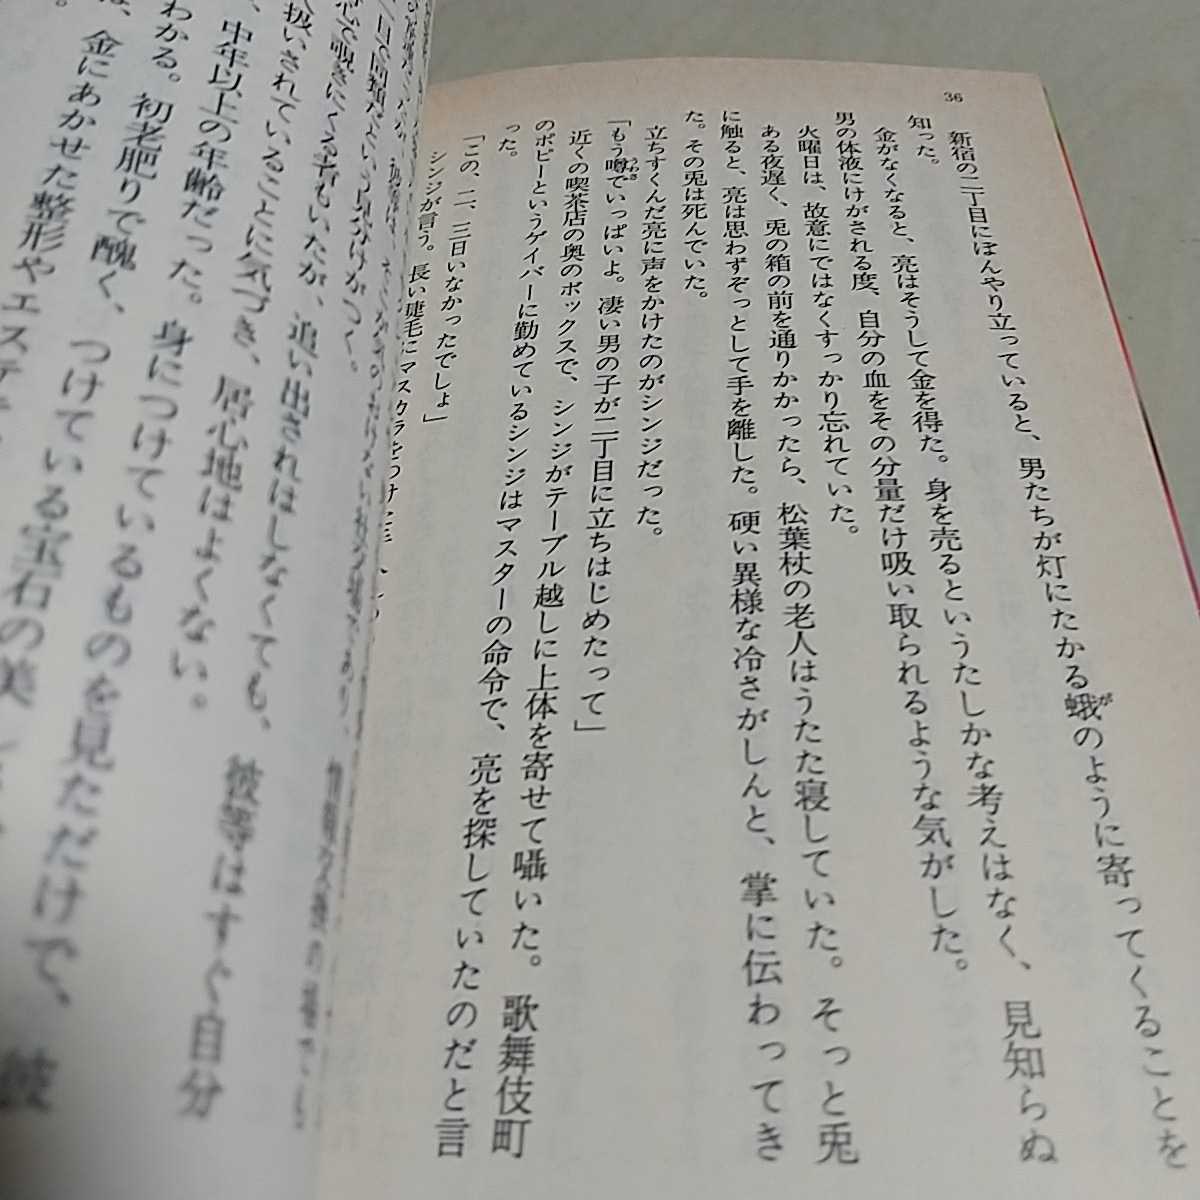 36
新宿の二丁目にぼんやり立っていると、男たちが灯にたかる蛾のように寄ってくることを
が
知った。
金がなくなると、亮はそうして金を得た。身を売るというたしかな考えはなく、見知らぬ
男の体液にけがされる度、自分の血をその分量だけ吸い取られるような気がした。
火曜日は、故意にではなくすっかり忘れていた。
ある夜遅く、兎の箱の前を通りかかったら、松葉杖の老人はうたた寝していた。そっと兎
に触ると、亮は思わずぞっとして手を離した。硬い異様な冷さがしんと、掌に伝わってき
た。その兎は死んでいた。
立ちすくんだ亮に声をかけたのがシンジだった。
「もう噂でいっぱいよ。凄い男の子が二丁目に立ちはじめたって」
うわさ
近くの喫茶店の奥のボックスで、シンジがテーブル越しに上体を寄せて囁いた。歌舞伎町
のボビーというゲイバーに勤めているシンジはマスターの命令で、亮を探していたのだと言
った。
「この、二、三日いなかったでしょ」
シンジが言う。長い睫毛にマスカラをつけ
心で覗きにくる者もいたが、追い出されはしなくても、彼等はすぐ自分
扱いされていることに気づき、居心地はよくない。
、中年以上の年齢だった。身につけているものを見ただけで、彼
わかる。初老肥りで醜く、つけている宝石の美し
は、金にあかせた整形やエステ